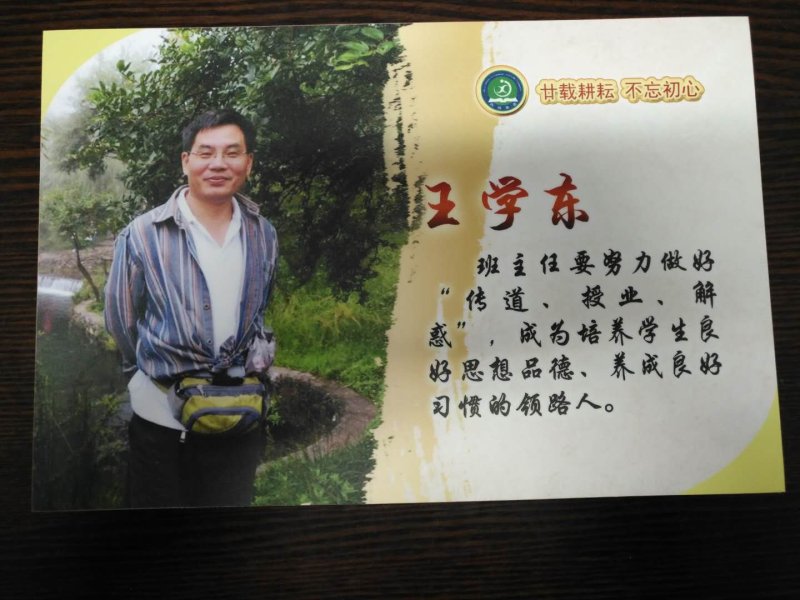 廿载耕耘 不忘初心
王学东
班主任要努力做好
“传道、授业、解
惑”，成为培养学生良
好思想品德、养成良好
习惯的领路人。